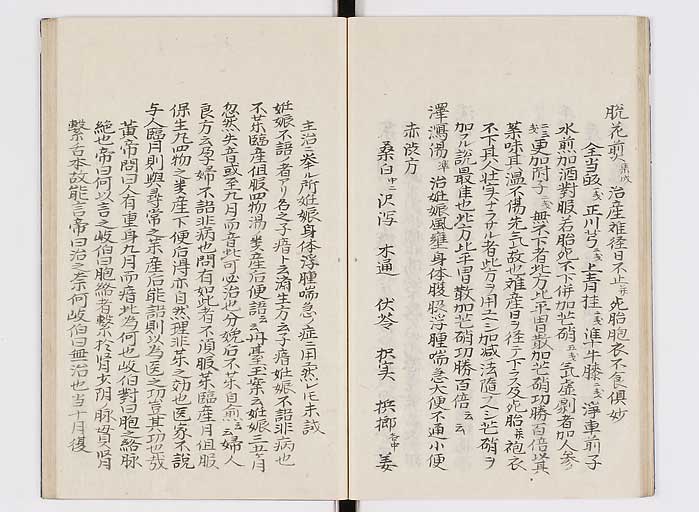 脱花煎 集成 治産難径日不止并死胎胞衣不食俱妙
全当皈 正川芎 上青桂 準牛膝 浄車前子
水煎加酒對服若胎死不下併加芒硝 気虚劇者加人参
更加附子 無不下者此方比平胃散加芒硝功勝百倍其
薬味且温不傷先気故也難産日ヲ径テ下ラス及死胎并袍衣
不下其人壮実ナラサル者此方ヲ用ユヘシ加減法随フヘシ芒硝ヲ
加フル説最佳也此方比平胃散加芒硝功勝百倍云云
澤瀉湯 準 治妊娠風壅身体腹股浮腫喘急大便不通小便
赤渋方
桑白 沢瀉 木通 伏苓 枳実 梹榔 姜
主治ニ挙ル所妊娠身体浮腫喘急ノ症ニ用テ然レヒ未試
妊娠不語ノ者アリ名之子瘖ト云済生方云子瘖妊娠不語非病也
不薬臨産但服四物湯ノ類産后便語云云丹臺玉案云妊娠三五ヶ月
忽然失音或至九月而音此可必治也分娩后不薬自愈云云婦人
良方云孕婦不語非病也間有如此者不須服薬臨産月但服
保生丸四物之類産下便后得亦自然理非薬之効也医家不説
与人臨月則與尋常之薬産后能語則以為医之功豈其功也哉
黄帝問曰人有重身九月而瘖此為何也岐伯對曰胞之絡脉
絶也帝曰何以言之岐伯曰胞絡者繋於腎少陰ノ脉貫腎
繋舌本故能言帝曰治之奈何岐伯曰無治也当十月復